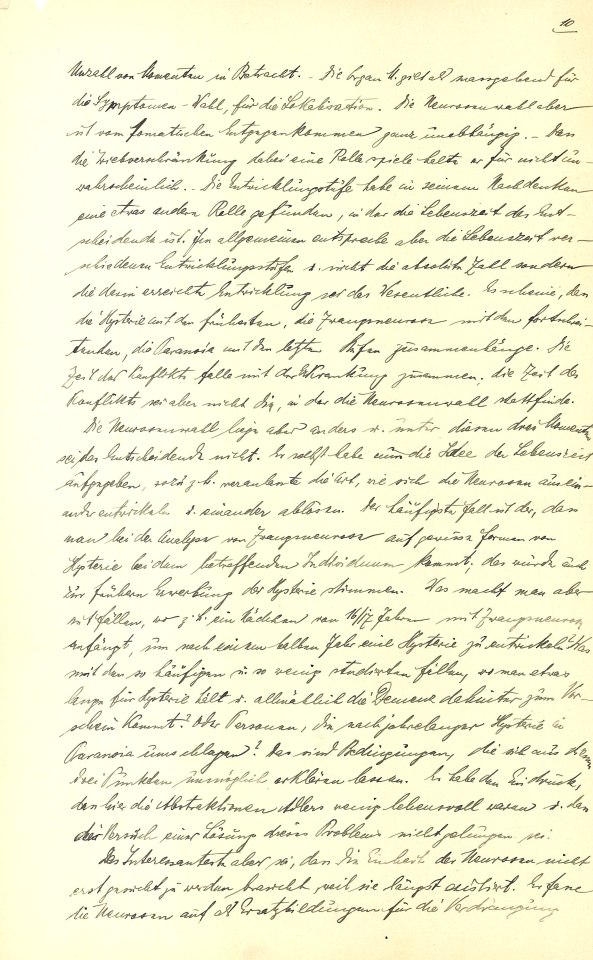 10
Unzahl von Momenten in Betracht. - Die Organ M. gilt als massgebend für
die Symptomen-Wahl, für die Lokalisation. Die Neurosenwahl aber
ist vom somatischen Entgegenkommen ganz unabhängig. - Dass
die Triebverschränkung dabei eine Rolle spiele halte er für nicht un-
wahrscheinlich. - Die Entwicklungstufe habe in seinem Nachdenken
eine etwas andere Rolle gefunden, in der die Lebenszeit das Ent-
scheidende ist. Im allgemeinen entspreche aber die Lebenszeit ver-
schiedenen Entwicklungsstufen u. nicht die absolute Zall sondern
die darin erreichte Entwicklung sei das Wesentliche. Es scheine, dass
die Hysterie mit den frühesten, die Zwangsneurose mit den fortschrei-
tenden, die Paranoia mit den letzten Stufen zusammenhänge. Die
Zeit des Konflikts falle mit der Erkrankung zusammen; die Zeit des
Konflikts sei aber nicht die, in der die Neurosenwahl stattfinde.
Die Neurosenwahl liege aber anders u. unter diesen drei Momenten
sei das Entscheidende nicht. Er selbst habe nun die Idee der Lebenszeit
aufgegeben, wozu z.b. veranlasste die Art, wie sich die Neurosen ausein-
ander entwickeln u. einander ablösen. Der häufigste Fall ist der, dass
man bei der Analyse von Zwangsneurose auf gewisse Formen von
Hysterie bei dem betreffenden Individuum kommt; das würde auch
zur frühern Erwerbung der Hysterie stimmen. Was macht man aber
mit Fällen, wo z.b. ein Mädchen von 16/17 Jahren mit Zwangsneurose
anfängt, um nach einem halben Jahr eine Hysterie zu entwickeln? Was
mit den so häufigen u. so wenig studierten Fällen, wo man etwas
lange für Hysterie hält u. allmählich die Demenz dahinter zum Vor-
schein kommt? Oder Personen, die nach jahrelanger Hysterie in
Paranoia umschlagen? Das sind Bedingungen, die sich aus diesen
drei Punkten unmöglich erklären lassen. Er habe den Eindruck,
dass hier die Abstraktionen Adlers wenig lebensvoll waren u. dass
der Versuch einer Lösung dieses Problems nicht gelungen sei.
Das Interessanteste aber sei, dass die Einheit der Neurosen nicht
erst gesucht zu werden braucht, weil sie längst existirt. Er fasse
die Neurosen auf als Ersatzbildungen für die Verdrängung